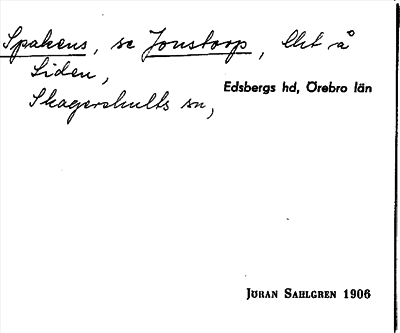 Spakens, se Jonstorp, lht å
Liden,
Edsbergs hd, Örebro län
Skagershults sn,
Jöran Sahlgren 1906